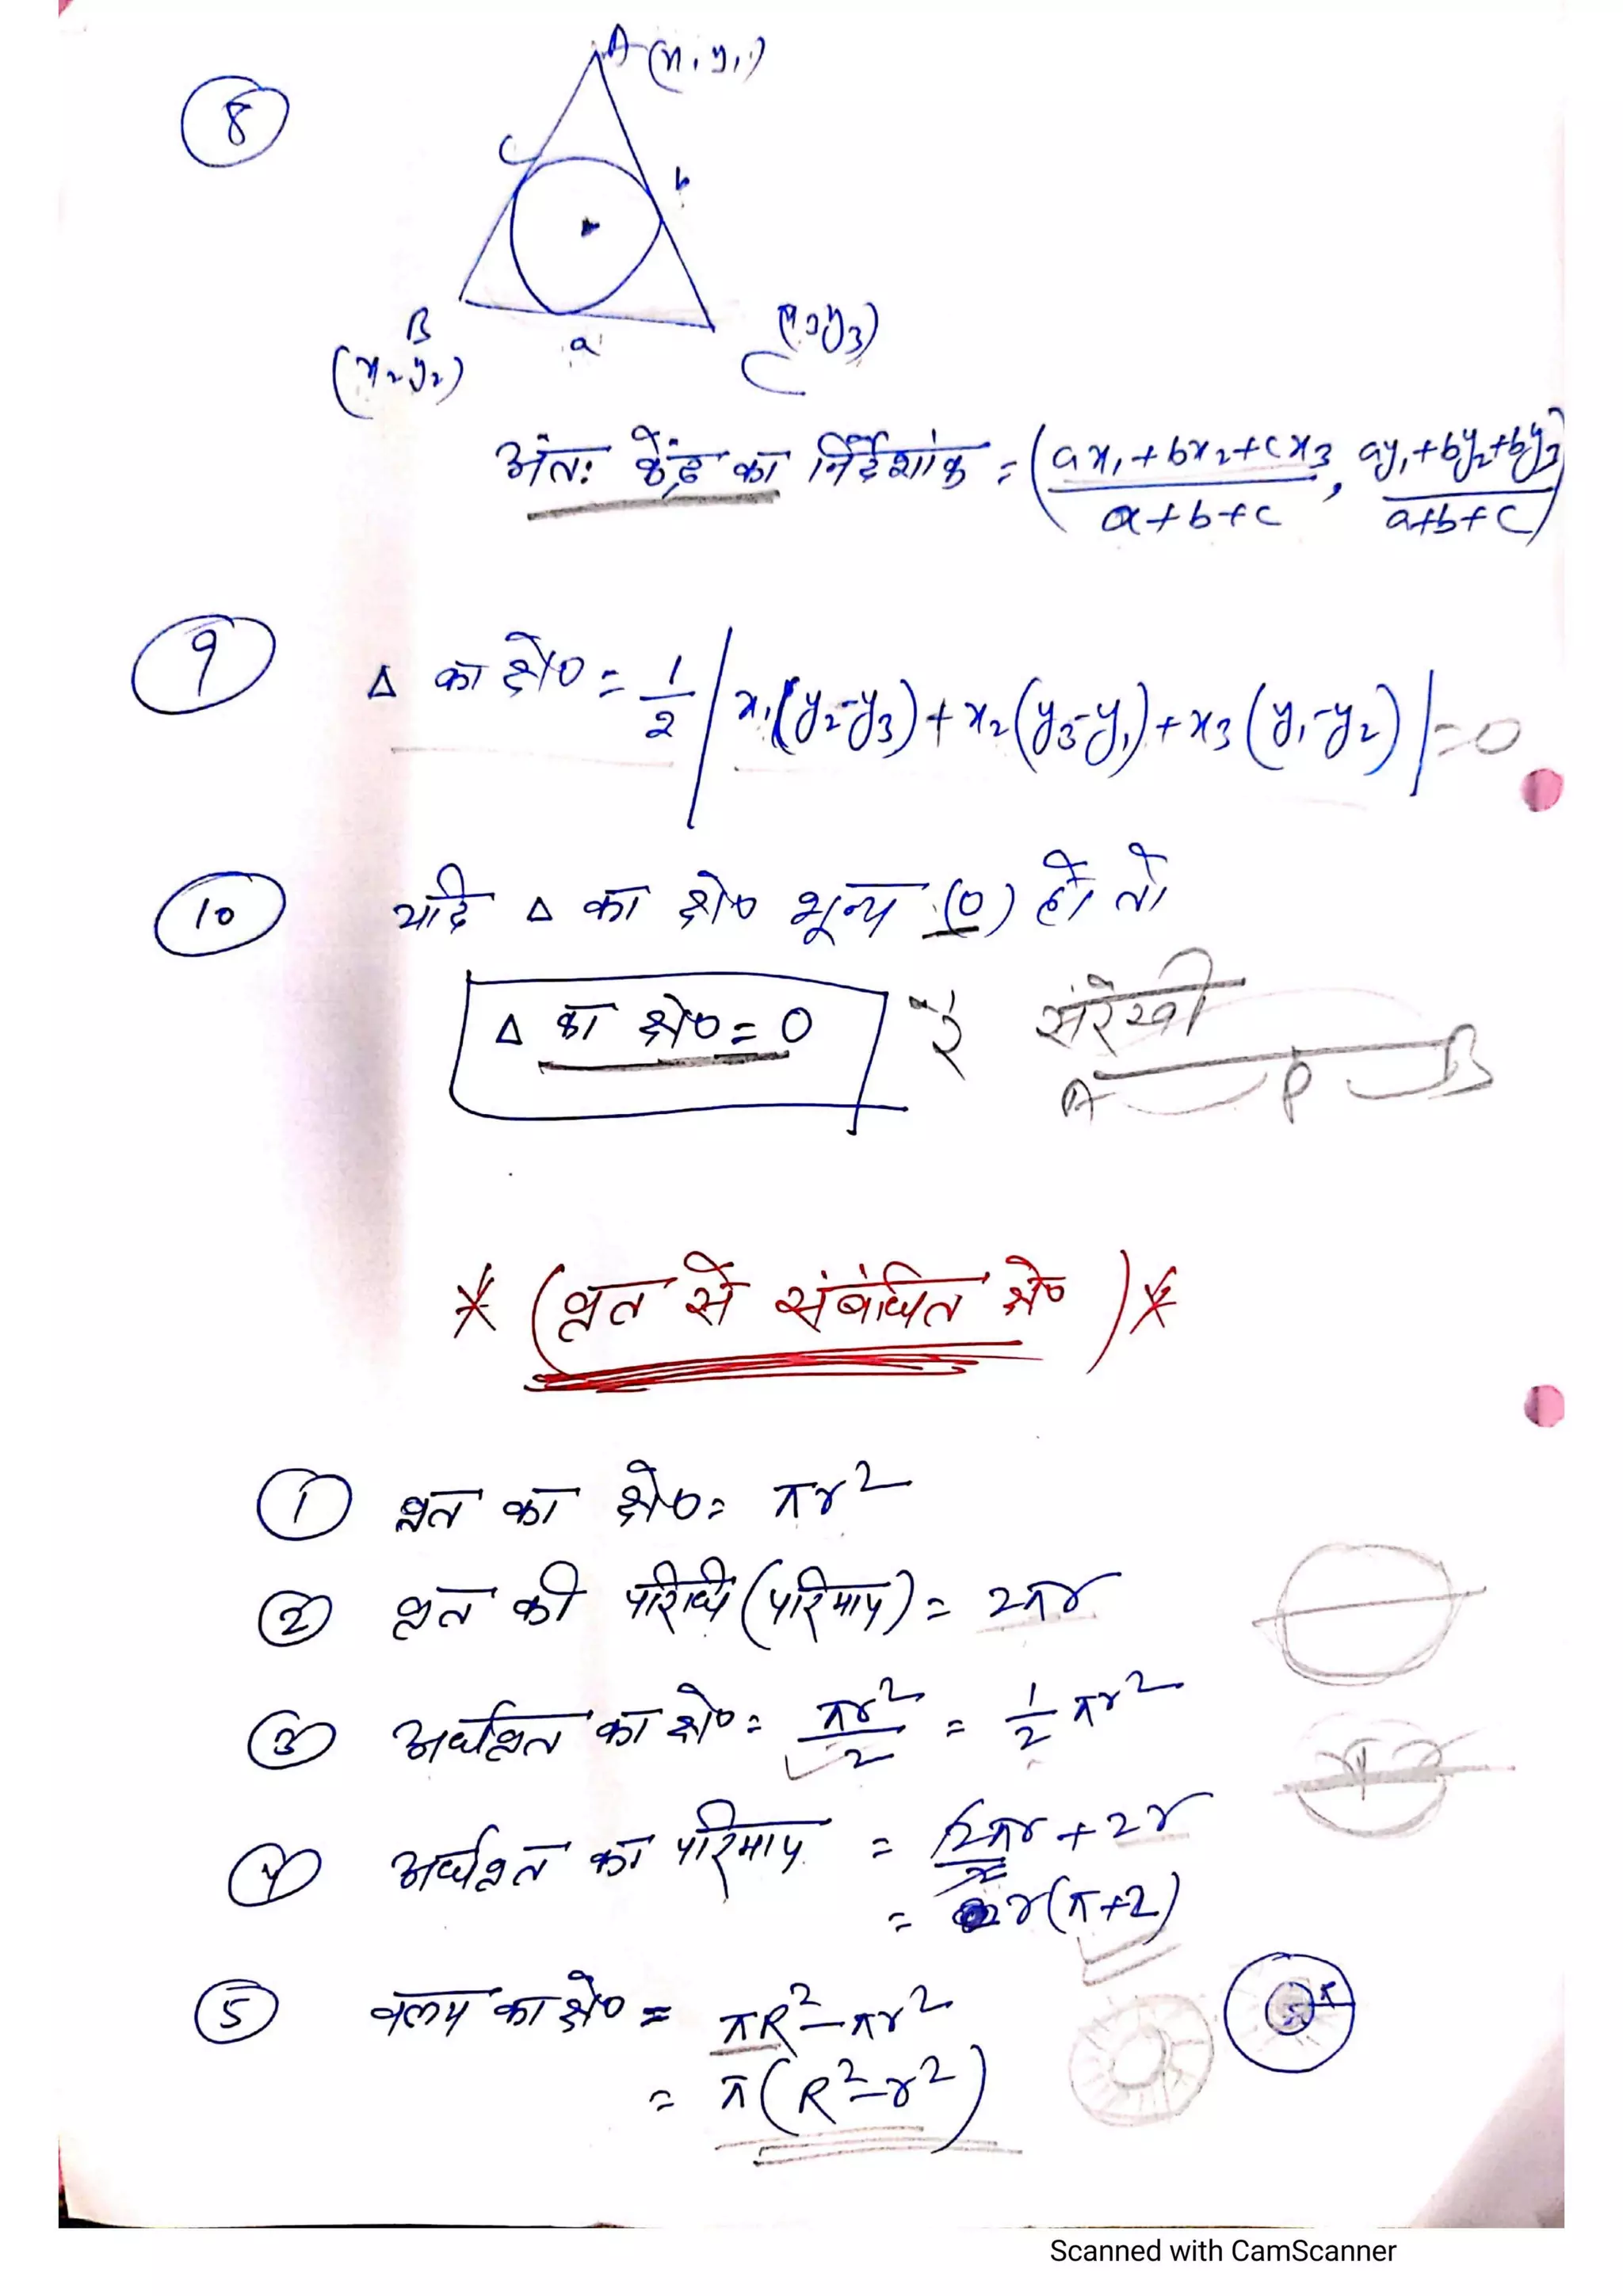 8
A (x1 y1)
c
b
B
(x2 y2)
a
C
(x3 y3)
अंतः केंद्र का निर्देशांक = (ax1+bx2+cx3 / a+b+c , ay1+by2+by3 / a+b+c)
9 Δ का क्षे० = 1/2 |x1(y2-y3)+x2(y3-y1)+x3(y1-y2)| =0
10 यदि Δ का क्षे० शून्य (0) हो तो
Δ का क्षे० = 0
संरेखी
A P B
* (वृत से संबंधित क्षे०) *
1 वृत का क्षे० = πr²
2 वृत की परिधि (परिमाप) = 2πr
3 अर्धवृत का क्षे० = πr²/2 = 1/2 πr²
4 अर्धवृत का परिमाप = 2πr/2 + 2r
= r(π+2)
5 वलय का क्षे० = πR²-πr²
= π(R²-r²)
Scanned with CamScanner